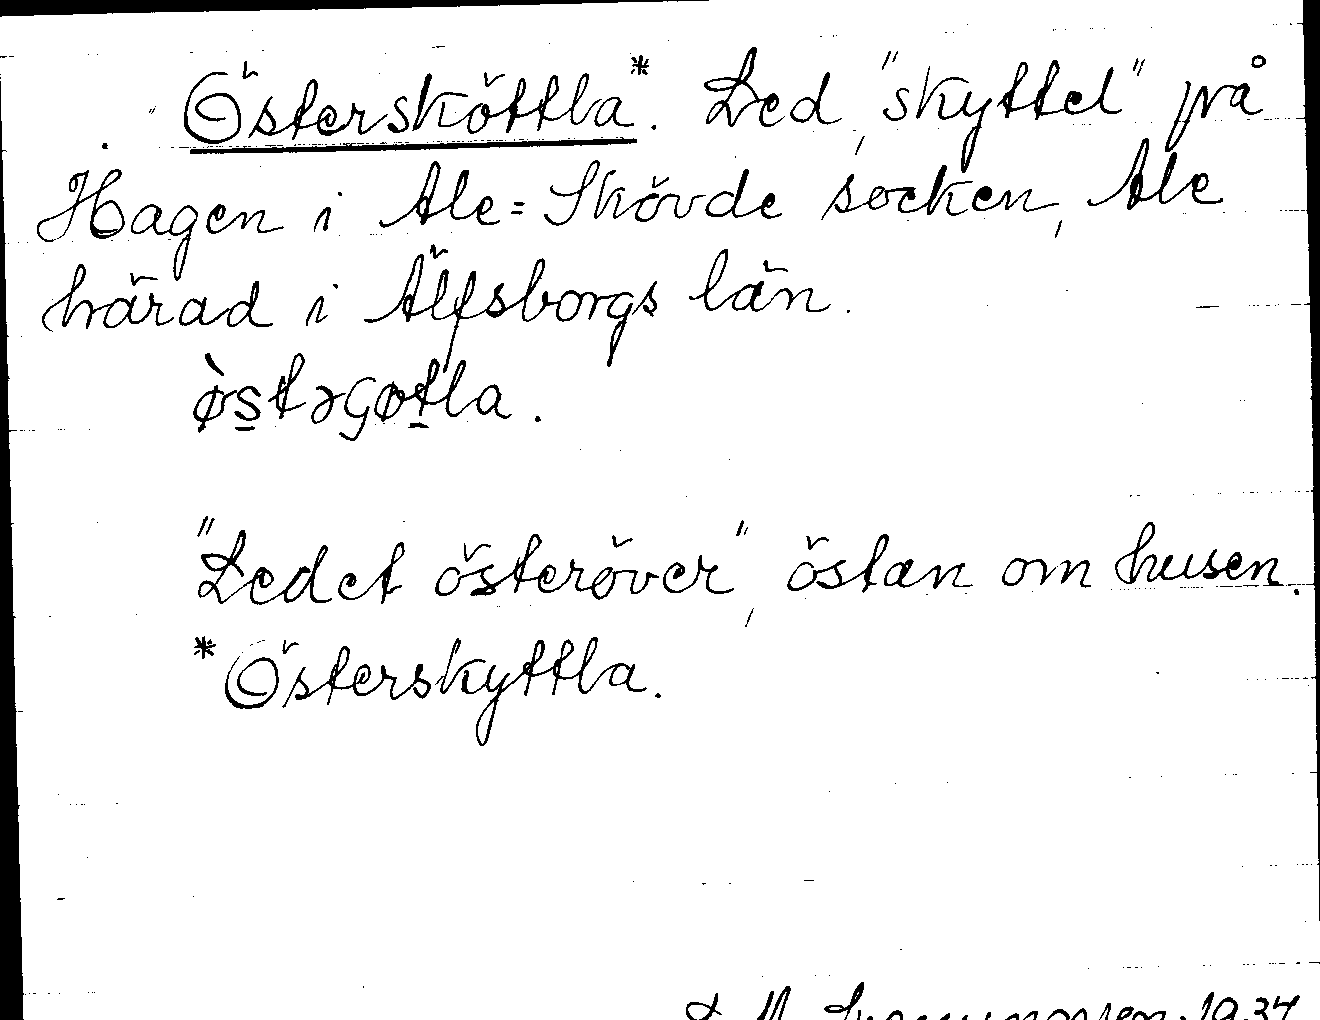 Östersköttla*. Led, "skyttel" på
Hagen i Ale=Skövde socken, Ale
härad i Älfsborgs län.
ø̀s̠təɕøt̠la.
"Ledet österöver", östan om husen.
*Österskyttla.
1934